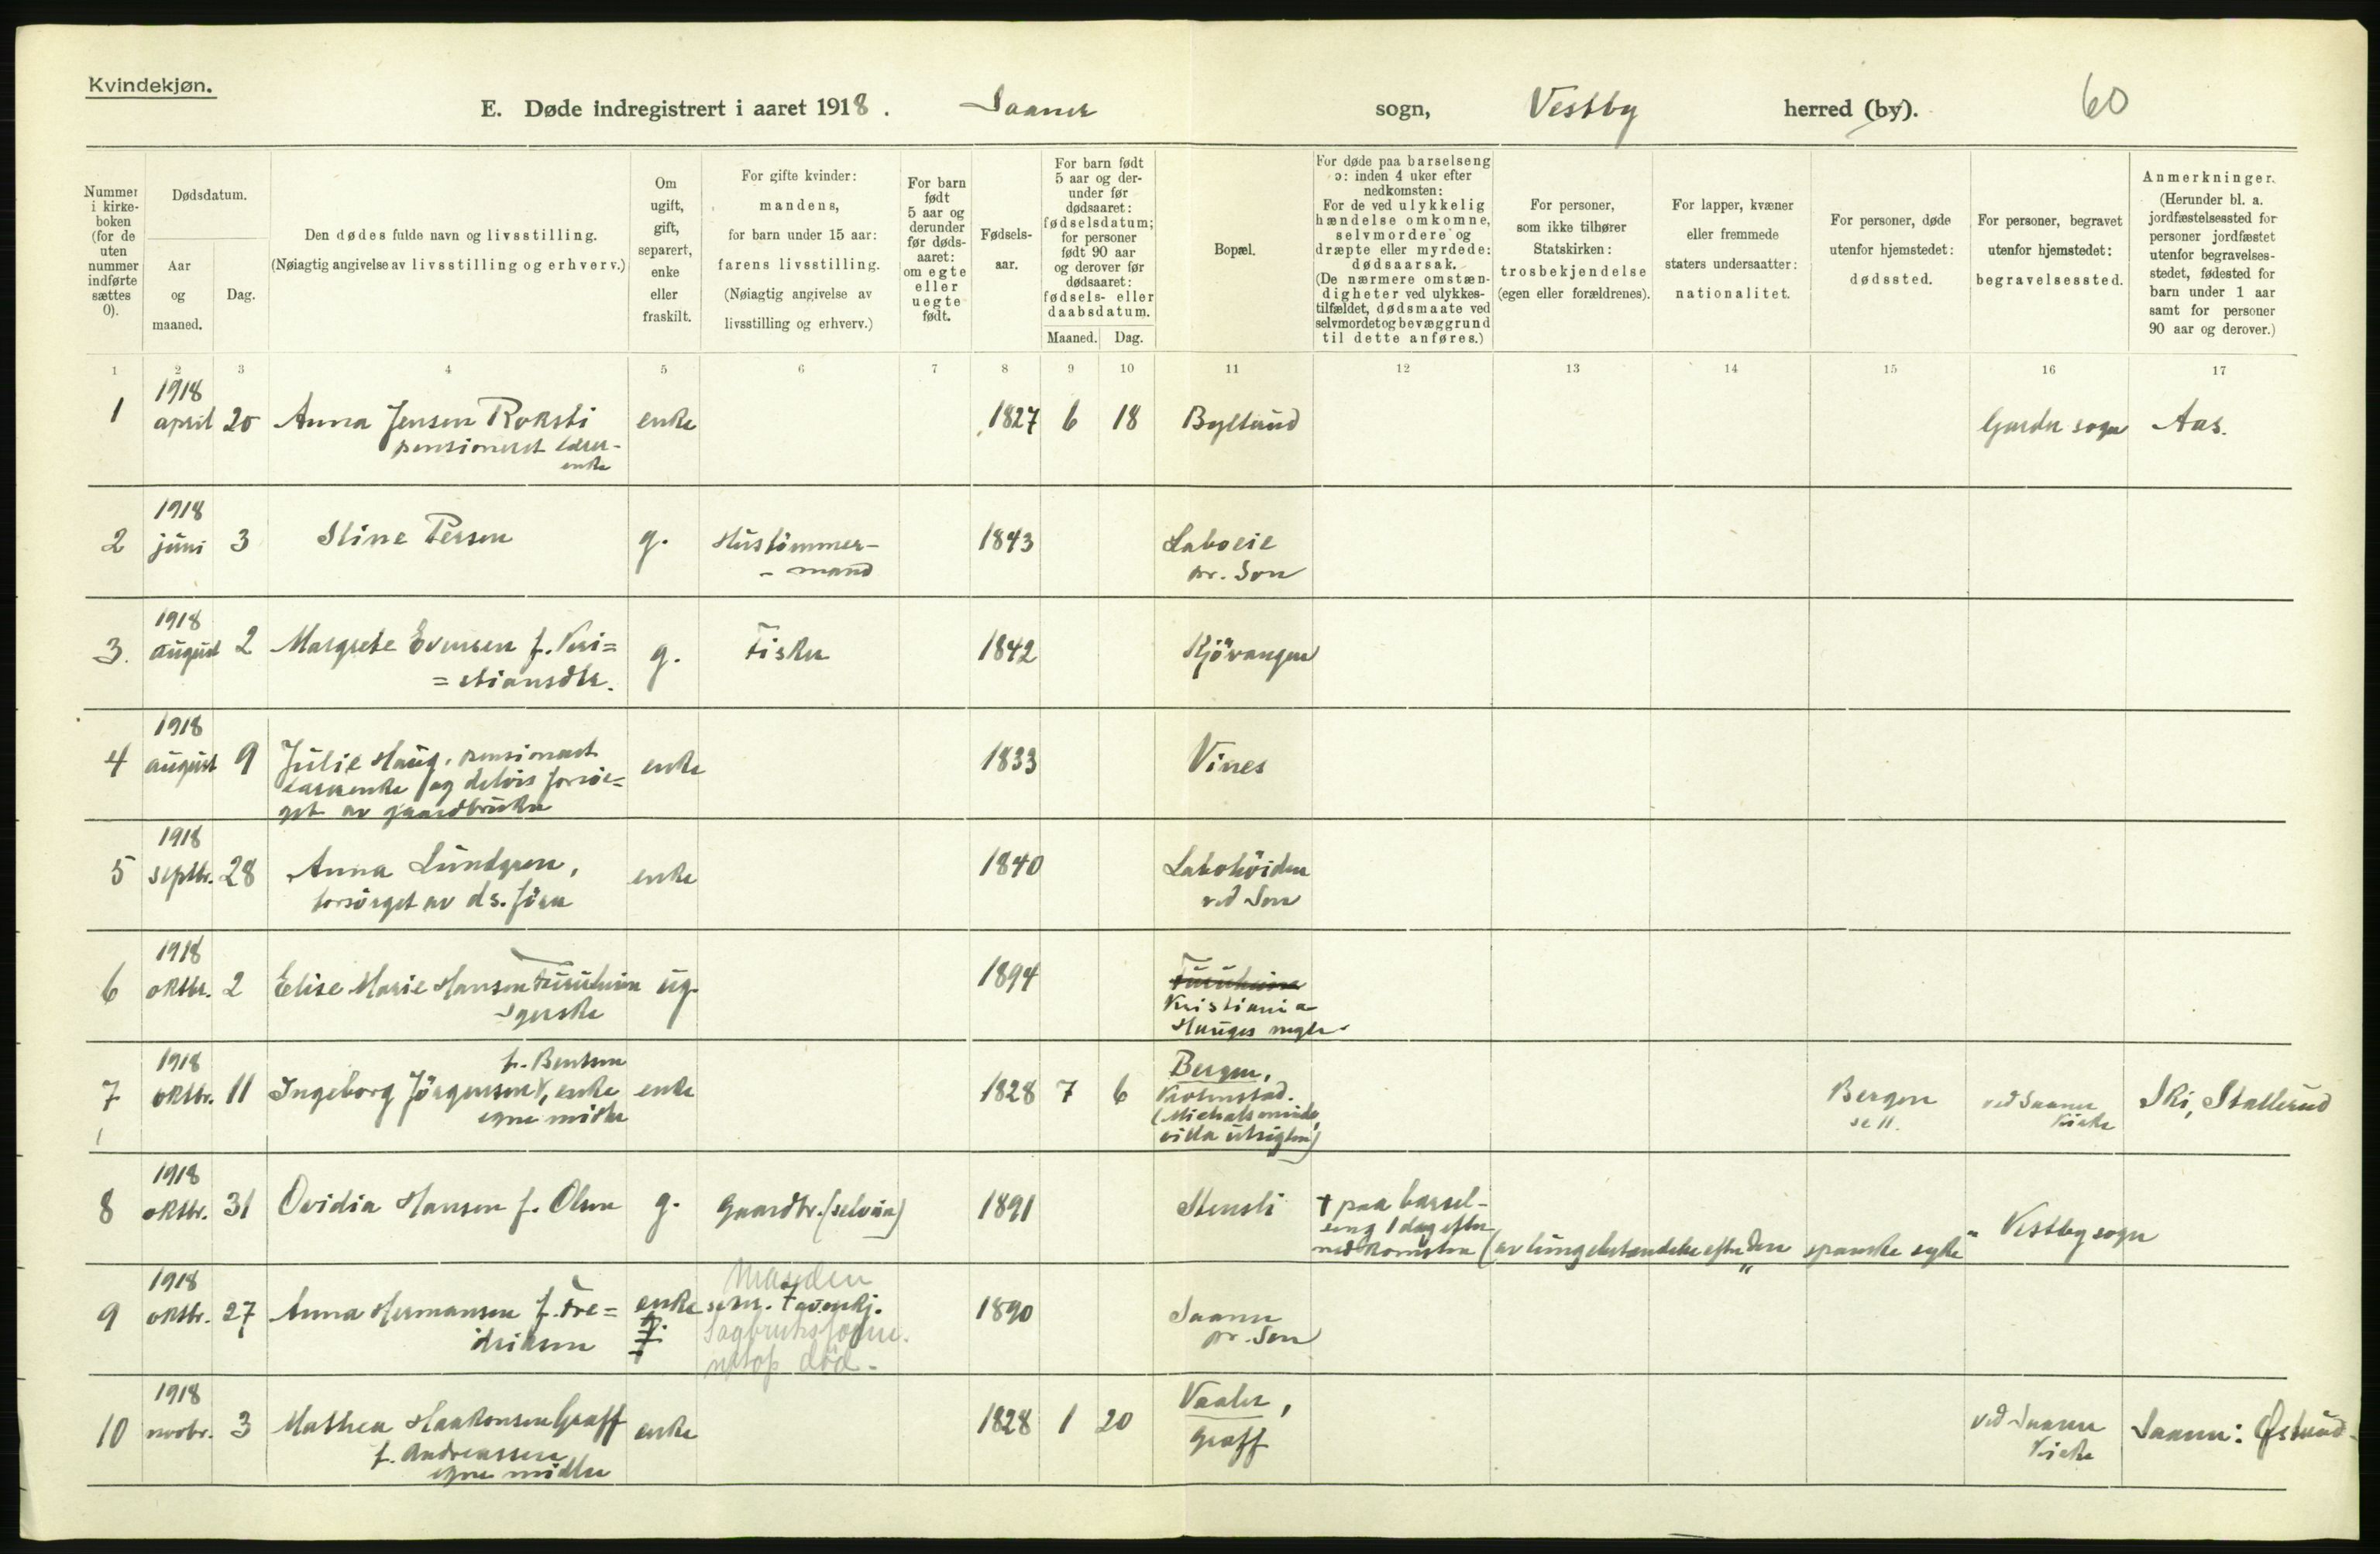 Kvindekjøn.
E. Døde indregistrert i aaret 1918. Saaner sogn, Vestby herred (by). 60
Nummer i kirkeboken (for de uten nummer indførte sættes 0).
Dødsdatum.
Aar og maaned.
Dag.
Den dødes fulde navn og livsstilling.
(Nøiagtig angivelse av livsstilling og erhverv.)
Om ugift, gift, separert, enke eller fraskilt.
For gifte kvinder: mandens, for barn under 15 aar: farens livsstilling. (Nøiagtig angivelse av livsstilling og erhverv.)
For barn født 5 aar og derunder før dødsaaret: om egte eller uegte født.
Fødselsaar.
For barn født 5 aar og derunder før dødsaaret: fødselsdatum; for personer født 90 aar og derover før dødsaaret: fødsels- eller daabsdatum.
Maaned. Dag.
Bopæl.
For døde paa barselseng ɔ: inden 4 uker efter nedkomsten: For de ved ulykkelig hændelse omkomne, selvmordere og dræpte eller myrdede: dødsaarsak. (De nærmere omstændigheter ved ulykkestilfældet, dødsmaate ved selvmordet og bevæggrund til dette anføres.)
For personer, som ikke tilhører Statskirken: trosbekjendelse (egen eller forældrenes).
For lapper, kvæner eller fremmede staters undersaatter: nationalitet.
For personer, døde utenfor hjemstedet: dødssted.
For personer, begravet utenfor hjemstedet: begravelsessted.
Anmerkninger. (Herunder bl. a. jordfæstelsessted for personer jordfæstet utenfor begravelsesstedet, fødested for barn under 1 aar samt for personer 90 aar og derover.)
1 2 3 4 5 6 7 8 9 10 11 12 13 14 15 16 17
1 1918 april 20 Anna Jensen Roksti enke 1827 6 18 Byltund Garder sogn Aas.
pensioneret lærerenke
2 1918 juni 3 Stine Persen g. Hustømmer-
mand 1843 Laboeie
pr. Son
3. 1918 august 2 Margrete Evensen f. Kri=
=stiansdtr. g. Fisker 1842 Kjövangen
4 1918 august 9 Julie Haug, pensioneret enke 1833 Vines
og delvis forsør=
get av gaardbruker
5 1918 septbr. 28 Anna Lundgren, enke 1840 Labohöiden
forsörget av ds. ved Son
6 1918 oktbr. 2 Elise Marie Hansen Furuheim ug. 1894 Furuheim
Kristiania
Hauges
7 1918 oktbr. 11 f. Bentsen
Ingeborg Jörgensen, enke enke 1828 7 6 Bergen,
egne midler Kolmstad.
Bergen
se 11. ved Saaner
Kirke Ski, Stallerud
8 1918 oktbr. 31 Ovidia Hansen f. Olsen g. gaardbr. (selveier) 1891 Stensli † paa barsel-
seng 1 dag efter
nedkomsten (av lungebetændelse efter "den spanske syke" Vestby sogn
9 1918 oktbr. 27 Anna Hermansen f. Fre=
driksen enke g. Manden
Sagbruksform.
netop död. 1890 Saaner
pr. Son
10 1918 novbr. 3 Mathea Haakonsen Graff enke 1828 1 20 Vaaler,
f. Andreassen Graff
egne midler ved Saaner
Kirke Saaner: Østrud